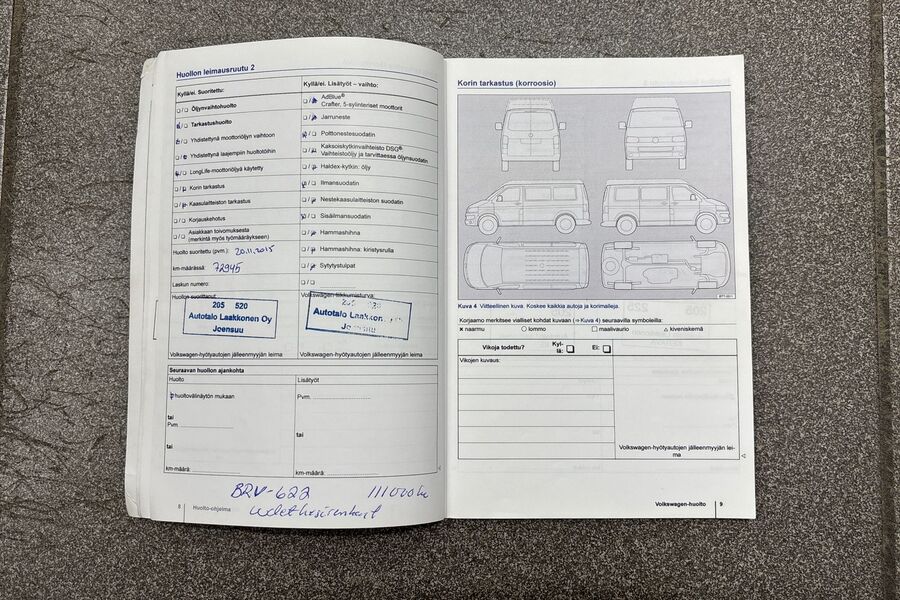 Huollon leimausruutu 2
Kyllä/ei. Suoritettu:
Öljynvaihtohuolto
Tarkastushuolto
Yhdistettynä moottoriöljyn vaihtoon
Yhdistettynä laajempiin huoltotöihin
LongLife-moottoriöljyä käytetty
Korin tarkastus
Kaasulaitteiston tarkastus
Korjauskehotus
Asiakkaan toivomuksesta
(merkintä myös työmääräykseen)
Huolto suoritettu (pvm.): 20.11.2015
km-määrässä: 72945
Laskun numero:
Huollon suorittanut:
205 520
Autotalo Laakkonen Oy
Joensuu
Volkswagen-hyötyautojen jälleenmyyjän leima
Kyllä/ei. Lisätyöt – vaihto:
AdBlue®
Crafter, 5-sylinteriset moottorit
Jarruneste
Polttonestesuodatin
Kaksoiskytkinvaihteisto DSG®
Vaihteistoöljy ja tarvittaessa öljynsuodatin
Haldex-kytkin: öljy
Ilmansuodatin
Nestekaasulaitteiston suodatin
Sisäilmansuodatin
Hammashihna
Hammashihna: kiristysrulla
Sytytystulpat
Volkswagen liikkumisturva:
Autotalo Laakkonen
Joensuu
Volkswagen-hyötyautojen jälleenmyyjän leima
Seuraavan huollon ajankohta
Huolto
huoltovälinäytön mukaan
tai
Pvm.
tai
km-määrä:
Lisätyöt
Pvm.
tai
km-määrä:
BRV-622 111000km
8 Huolto-ohjelma
Korin tarkastus (korroosio)
Kuva 4 Viitteellinen kuva. Koskee kaikkia autoja ja korimalleja.
Korjaamo merkitsee vialliset kohdat kuvaan (⇒ Kuva 4) seuraavilla symboleilla:
× naarmu ○ lommo □ maalivaurio △ kiveniskemä
Vikoja todettu? Kyl-
lä: Ei:
Vikojen kuvaus:
Volkswagen-hyötyautojen jälleenmyyjän lei-
ma
Volkswagen-huolto 9